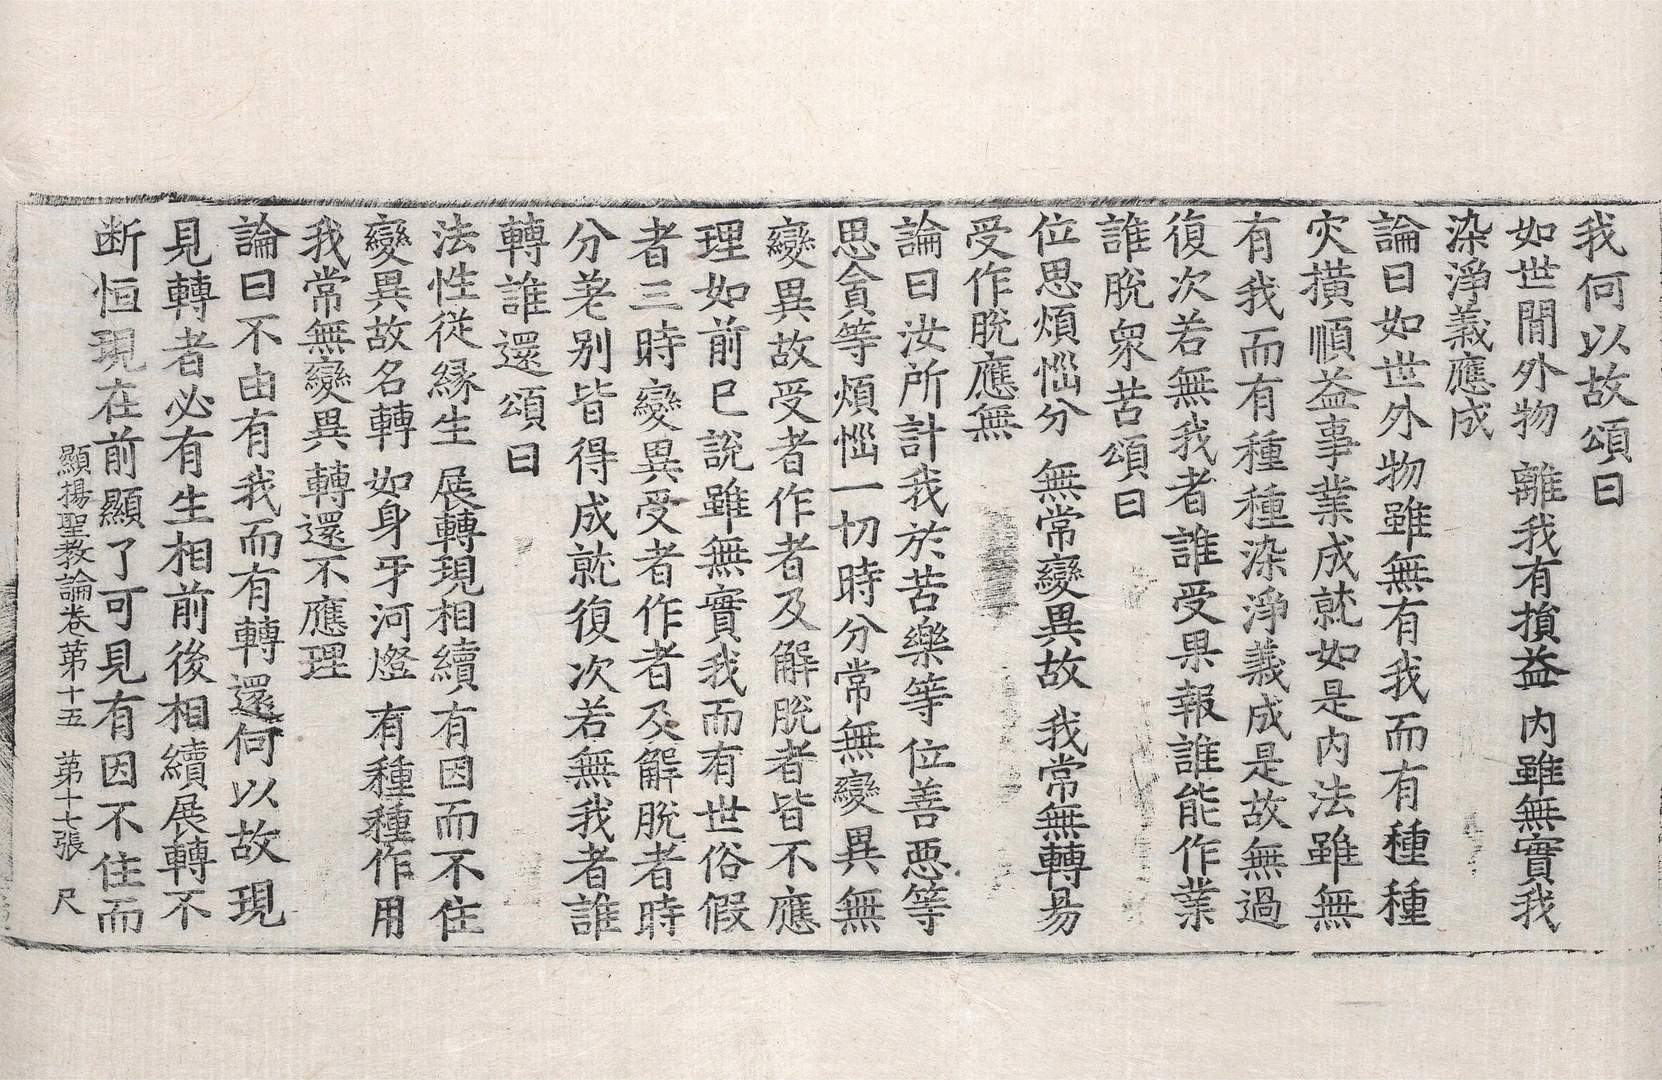 我何以故頌曰
如世間外物 離我有損益 內雖無實我
染淨義應成
論曰如世外物雖無有我而有種種
灾撗順益事業成就如是內法雖無
有我而有種種染淨義成是故無過
復次若無我者誰受果報誰能作業
誰脫衆苦頌曰
位思煩惱分 無常變異故 我常無轉易
受作脫應無
論曰汝所計我於苦樂等位善惡等
思貪等煩惱一切時分常無變異無
變異故受者作者及解脫者皆不應
理如前已說雖無實我而有世俗假
者三時變異受者作者及解脫者時
分差別皆得成就復次若無我者誰
轉誰還頌曰
法性從緣生 展轉現相續 有因而不住
變異故名轉 如身牙河燈 有種種作用
我常無變異 轉還不應理
論曰不由有我而有轉還何以故現
見轉者必有生相前後相續展轉不
断恒現在前顯了可見有因不住而
顯揚聖教論卷第十五 第十七張 尺